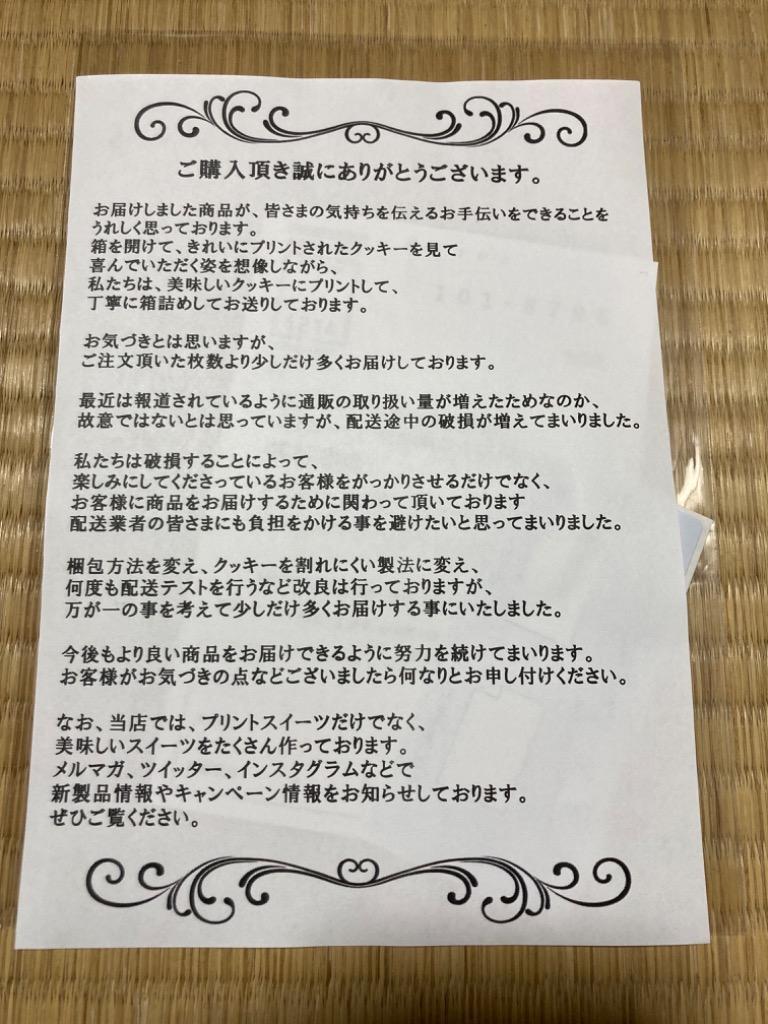 ご購入頂き誠にありがとうございます。
お届けしました商品が、皆さまの気持ちを伝えるお手伝いをできることを
うれしく思っております。
箱を開けて、きれいにプリントされたクッキーを見て
喜んでいただく姿を想像しながら、
私たちは、美味しいクッキーにプリントして、
丁寧に箱詰めしてお送りしております。
お気づきとは思いますが、
ご注文頂いた枚数より少しだけ多くお届けしております。
最近は報道されているように通販の取り扱い量が増えたためなのか、
故意ではないとは思っていますが、配送途中の破損が増えてまいりました。
私たちは破損することによって、
楽しみにしてくださっているお客様をがっかりさせるだけでなく、
お客様に商品をお届けするために関わって頂いております
配送業者の皆さまにも負担をかける事を避けたいと思ってまいりました。
梱包方法を変え、クッキーを割れにくい製法に変え、
何度も配送テストを行うなど改良は行っておりますが、
万が一の事を考えて少しだけ多くお届けする事にいたしました。
今後もより良い商品をお届けできるように努力を続けてまいります。
お客様がお気づきの点などございましたら何なりとお申し付けください。
なお、当店では、プリントスイーツだけでなく、
美味しいスイーツをたくさん作っております。
メルマガ、ツイッター、インスタグラムなどで
新製品情報やキャンペーン情報をお知らせしております。
ぜひご覧ください。